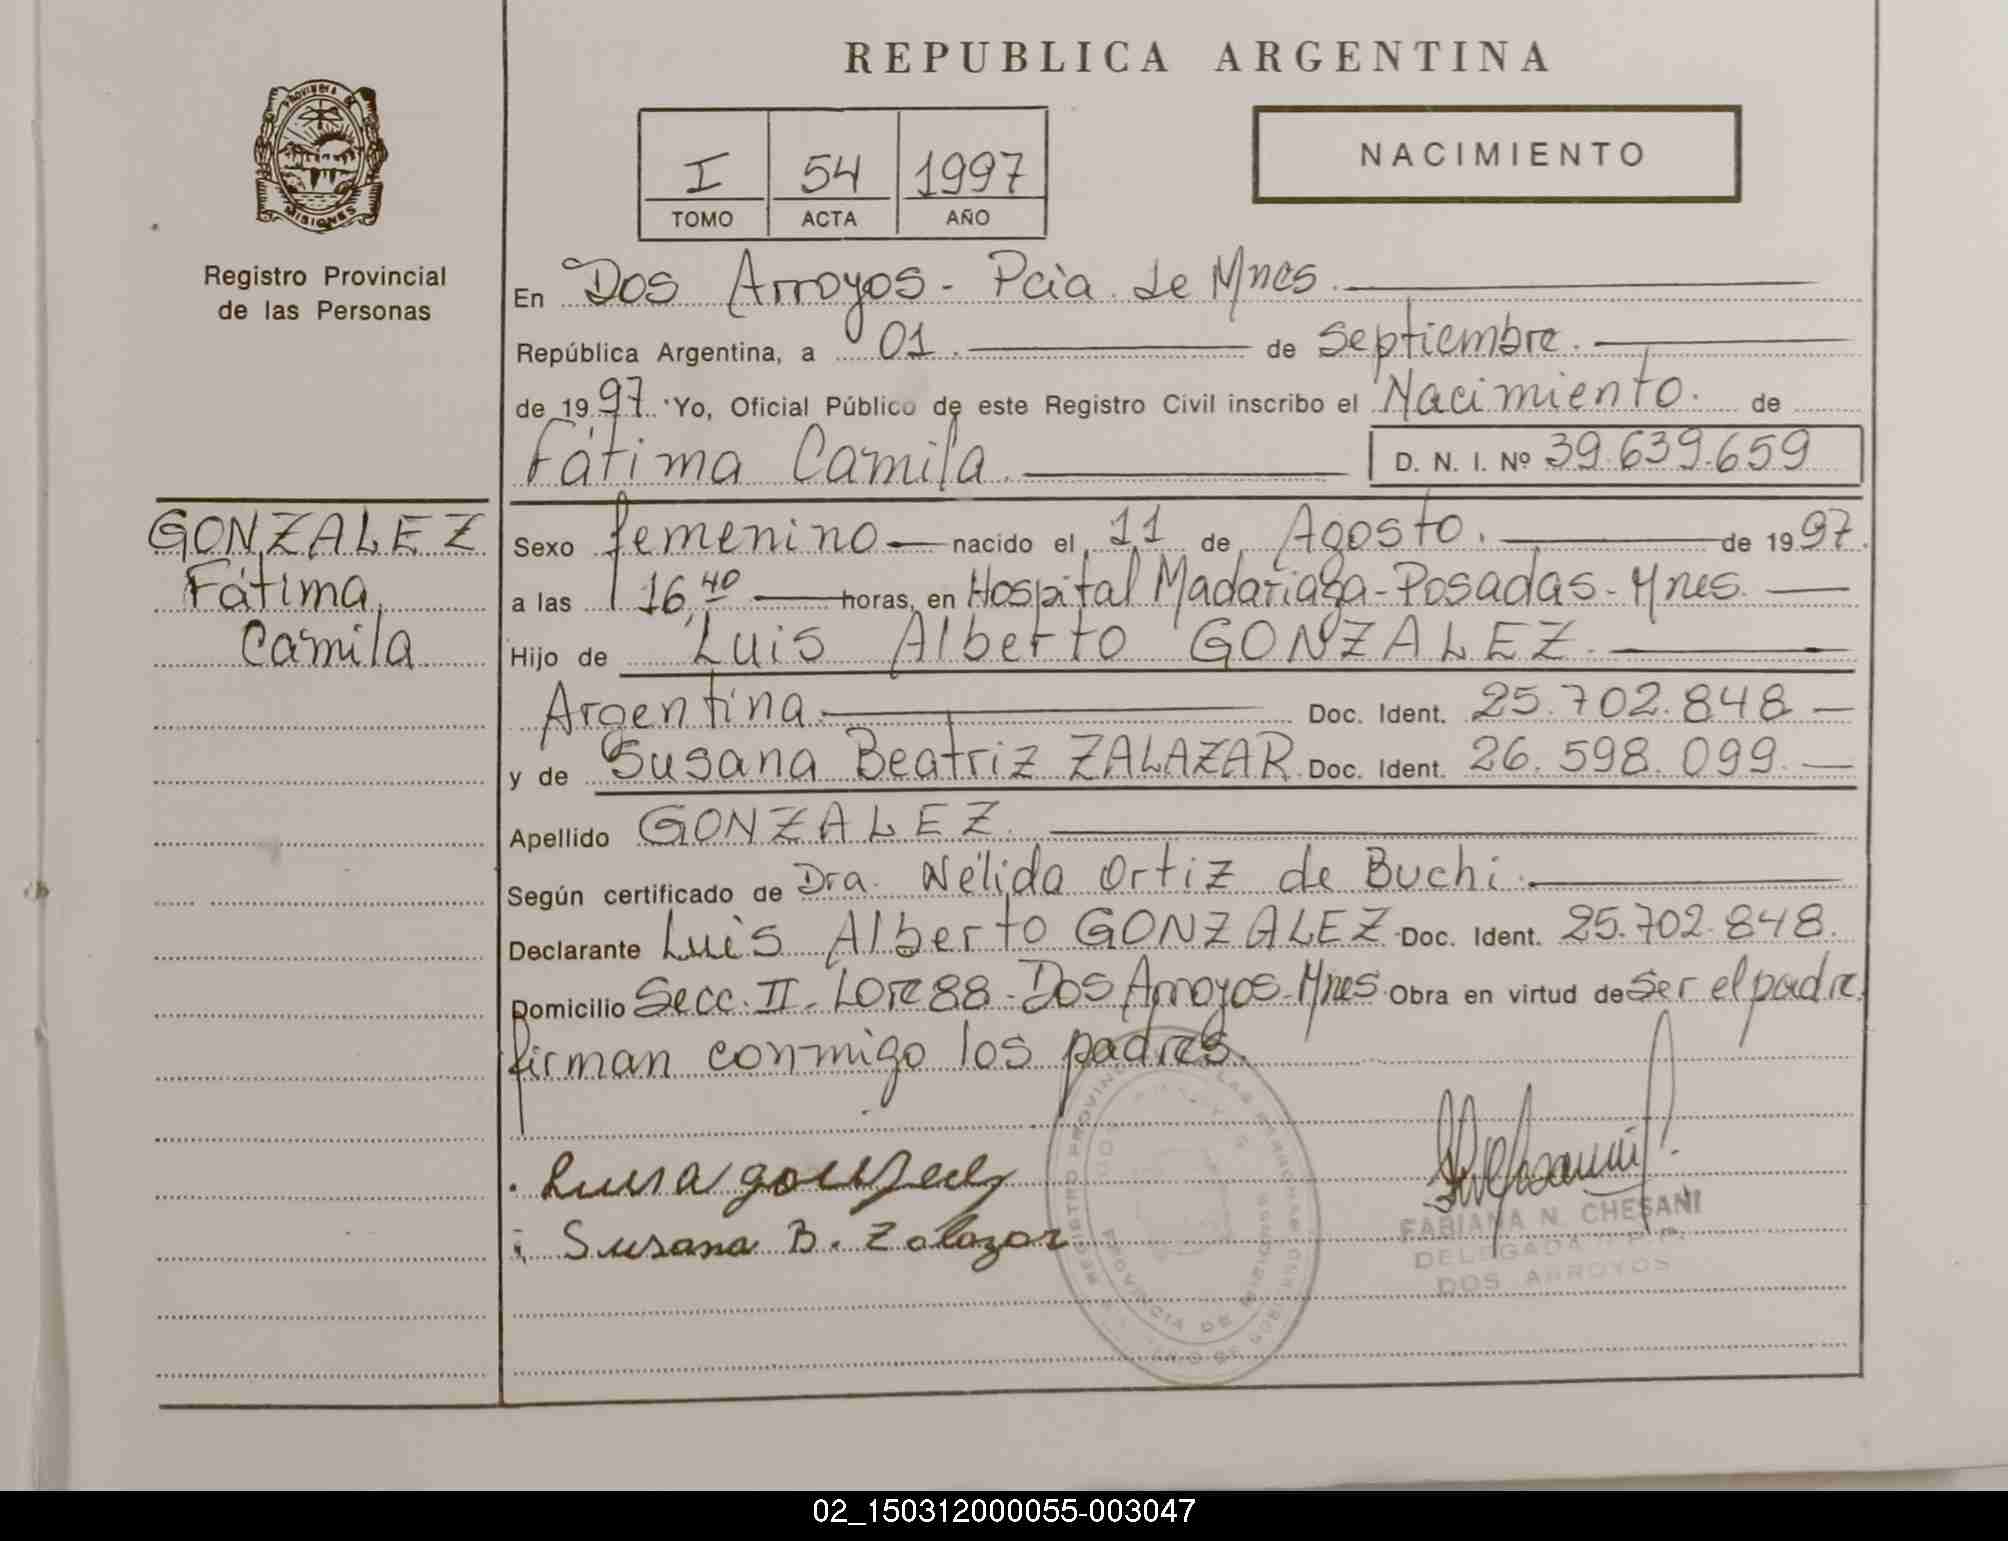 REPUBLICA ARGENTINA
PROVINCIA DE
MISIONES
Registro Provincial
de las Personas
I 54 1997
TOMO ACTA AÑO
NACIMIENTO
En Dos Arroyos - Pcia. de Mnes.
República Argentina, a 01. de Septiembre.
de 1997. Yo, Oficial Público de este Registro Civil inscribo el Nacimiento. de
Fátima Camila. D. N. I. Nº 39.639.659
GONZALEZ
Fátima
Camila
Sexo femenino nacido el 11 de Agosto. de 1997.
a las 16,40 horas, en Hospital Madariaga-Posadas-Mnes.
Hijo de Luis Alberto GONZALEZ.
Argentina. Doc. Ident. 25.702.848
y de Susana Beatriz ZALAZAR. Doc. Ident. 26.598.099.
Apellido GONZALEZ.
Según certificado de Dra. Nélida Ortiz de Buchi.
Declarante Luis Alberto GONZALEZ. Doc. Ident. 25.702.848.
Domicilio Secc. II - Lote 88 - Dos Arroyos-Mnes. Obra en virtud de ser el padre.
firman conmigo los padres.
Susana B. Zalazar
REGISTRO PROVINCIAL DE LAS PERSONAS
PROVINCIA DE MISIONES
FABIANA N. CHESANI
DELEGADA R.P.P.
DOS ARROYOS
02_150312000055-003047